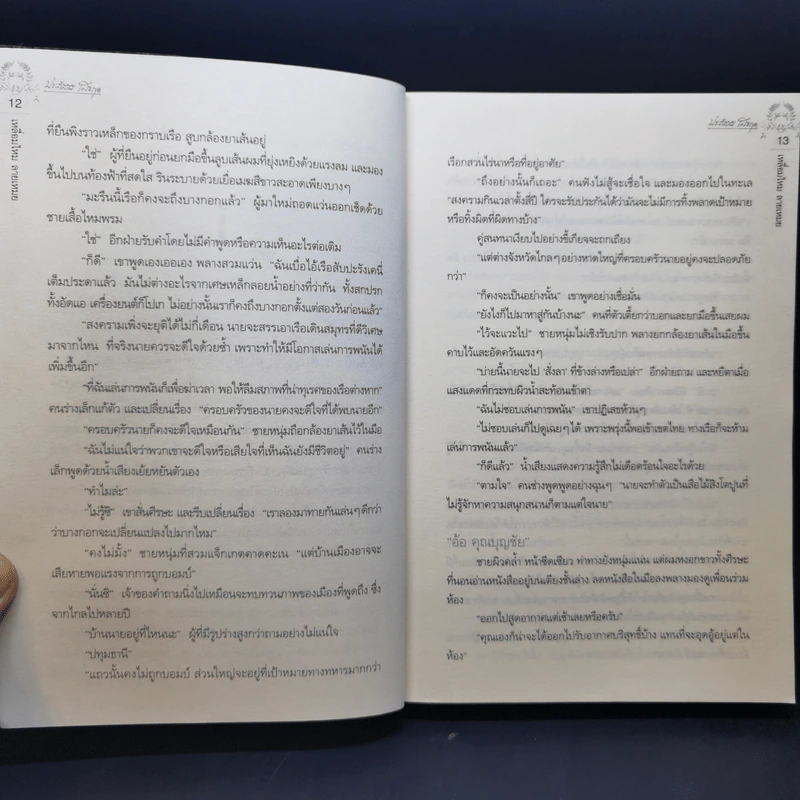 12
เหลี่ยมไหม ลายเหมย
ที่ยืนพิงราวเหล็กของกราบเรือ สูบกล้องยาเส้นอยู่
"ใช่" ผู้ที่ยืนอยู่ก่อนยกมือขึ้นลูบเส้นผมที่ยุ่งเหยิงด้วยแรงลม และมอง
ขึ้นไปบนท้องฟ้าที่สดใส รินระบายด้วยเยื่อเมฆสีขาวสะอาดเพียงบางๆ
"มะรืนนี้เรือก็คงจะถึงบางกอกแล้ว" ผู้มาใหม่ถอดแว่นออกเช็ดด้วย
ชายเสื้อไหมพรม
"ใช่" อีกฝ่ายรับคำโดยไม่มีคำพูดหรือความเห็นอะไรต่อเติม
"ก็ดี" เขาพูดเองเออเอง พลางสวมแว่น "ฉันเบื่อไอ้เรือสับปะรังเคนี่
เต็มประดาแล้ว มันไม่ต่างอะไรจากเศษเหล็กลอยน้ำอย่างที่ว่ากัน ทั้งสกปรก
ทั้งอัดแอ เครื่องยนต์ก็โปเก ไม่อย่างนั้นเราก็คงถึงบางกอกตั้งแต่สองวันก่อนแล้ว"
"สงครามเพิ่งจะยุติได้ไม่กี่เดือน นายจะสรรเอาเรือเดินสมุทรที่ดีวิเศษ
มาจากไหน ที่จริงนายควรจะดีใจด้วยซ้ำ เพราะทำให้มีโอกาสเล่นการพนันได้
เพิ่มขึ้นอีก"
"ที่ฉันเล่นการพนันก็เพื่อฆ่าเวลา พอให้ลืมสภาพที่น่าทุเรศของเรือต่างหาก"
คนร่างเล็กแก้ตัว และเปลี่ยนเรื่อง "ครอบครัวของนายคงจะดีใจที่ได้พบนายอีก"
"ครอบครัวนายก็คงจะดีใจเหมือนกัน" ชายหนุ่มถือกล้องยาเส้นไว้ในมือ
"ฉันไม่แน่ใจว่าพวกเขาจะดีใจหรือเสียใจที่เห็นฉันยังมีชีวิตอยู่" คนร่าง
เล็กพูดด้วยน้ำเสียงเย้ยหยันตัวเอง
"ทำไมล่ะ"
"ไม่รู้ซิ" เขาสั่นศีรษะ และรีบเปลี่ยนเรื่อง "เราลองมาทายกันเล่นๆดีกว่า
ว่าบางกอกจะเปลี่ยนแปลงไปมากไหม"
"คงไม่มั้ง" ชายหนุ่มที่สวมแจ็กเกตคาดคะเน "แต่บ้านเมืองอาจจะ
เสียหายพอแรงจากการถูกบอมบ์"
"นั่นซิ" เจ้าของคำถามนิ่งไปเหมือนจะทบทวนภาพของเมืองที่พูดถึง ซึ่ง
จากไกลไปหลายปี
"บ้านนายอยู่ที่ไหนนะ" ผู้ที่มีรูปร่างสูงกว่าถามอย่างไม่แน่ใจ
"ปทุมธานี"
"แถวนั้นคงไม่ถูกบอมบ์ ส่วนใหญ่จะอยู่ที่เป้าหมายทางทหารมากกว่า
13
เหลี่ยมไหม ลายเหมย
เรือกสวนไร่นาหรือที่อยู่อาศัย"
"ถึงอย่างนั้นก็เถอะ" คนฟังไม่สู้จะเชื่อใจ และมองออกไปในทะเล
"สงครามกินเวลาตั้งสี่ปี ใครจะรับประกันได้ว่ามันจะไม่มีการทิ้งพลาดเป้าหมาย
หรือทิ้งผิดที่ผิดทางบ้าง"
คู่สนทนาเงียบไปอย่างขี้เกียจจะถกเถียง
"แต่ต่างจังหวัดไกลๆอย่างหาดใหญ่ที่ครอบครัวนายอยู่คงจะปลอดภัย
กว่า"
"ก็คงจะเป็นอย่างนั้น" เขาพูดอย่างเชื่อมั่น
"ยังไงก็ไปมาหาสู่กันบ้างนะ" คนที่ตัวเตี้ยกว่าบอกและยกมือขึ้นเสยผม
"ไว้จะแวะไป" ชายหนุ่มไม่เชิงรับปาก พลางยกกล้องยาเส้นในมือขึ้น
คาบไว้และอัดควันแรงๆ
"บ่ายนี้นายจะไป 'สั่งลา' ที่ข้างล่างหรือเปล่า" อีกฝ่ายถาม และหยีตาเมื่อ
แสงแดดที่กระทบผิวน้ำสะท้อนเข้าตา
"ฉันไม่ชอบเล่นการพนัน" เขาปฏิเสธห้วนๆ
"ไม่ชอบเล่นก็ไปดูเฉยๆได้ เพราะพรุ่งนี้พอเข้าเขตไทย ทางเรือก็จะห้าม
เล่นการพนันแล้ว"
"ก็ดีแล้ว" น้ำเสียงแสดงความรู้สึกไม่เดือดร้อนใจอะไรด้วย
"ตามใจ" คนช่างพูดพูดอย่างฉุนๆ "นายจะทำตัวเป็นเสือไม้สิงโตปูนที่
ไม่รู้จักหาความสนุกสนานก็ตามแต่ใจนาย"
"อ้อ คุณบุญชัย"
ชายผิวคล้ำ หน้าซีดเซียว ท่าทางยังหนุ่มแน่น แต่ผมหงอกขาวทั้งศีรษะ
ที่นอนอ่านหนังสืออยู่บนเตียงชั้นล่าง ลดหนังสือในมือลงพลางมองดูเพื่อนร่วม
ห้อง
"ออกไปสูดอากาศแต่เช้าเลยหรือครับ"
"คุณเองก็น่าจะได้ออกไปรับอากาศบริสุทธิ์บ้าง แทนที่จะอุดอู้อยู่แต่ใน
ห้อง"